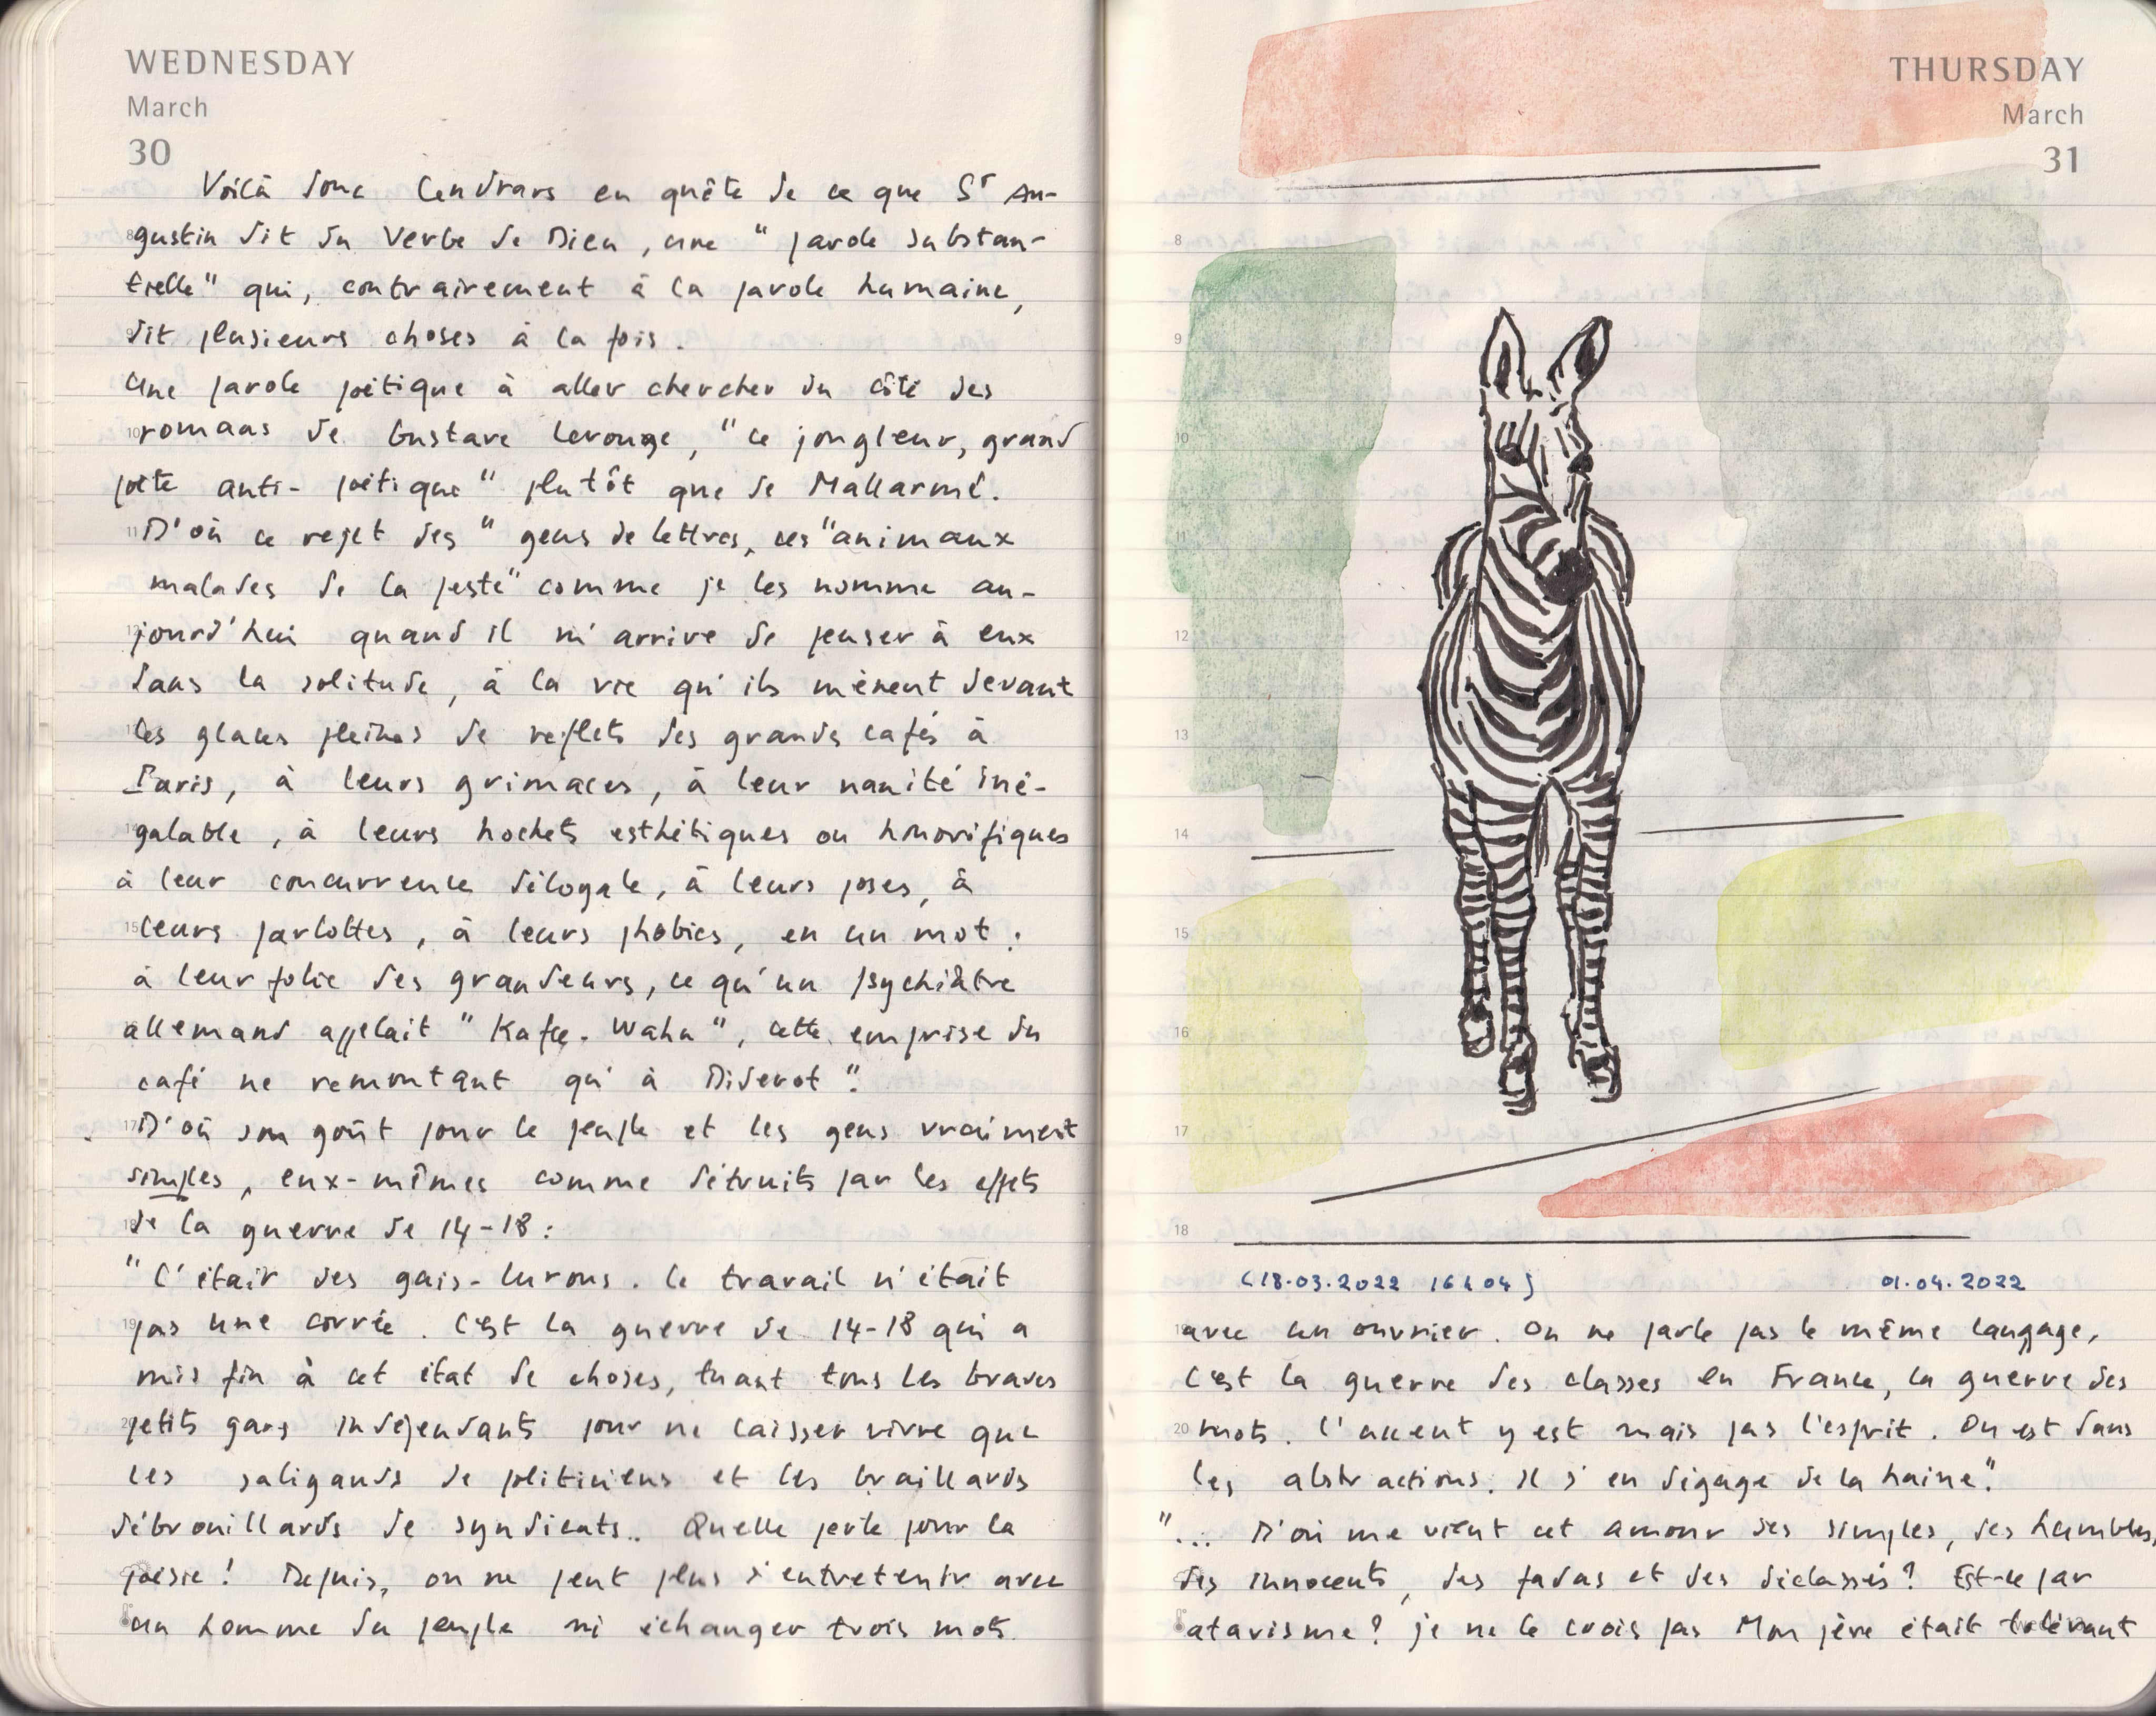 WEDNESDAY
March
30
Voilà donc Cendrars en quête de ce que St Au-
gustin dit du Verbe de Dieu, une " parole substan-
tielle" qui, contrairement à la parole humaine,
dit plusieurs choses à la fois.
Une parole poétique à aller chercher du côté des
romans de Gustave Lerouge, "ce jongleur, grand
poète anti-poétique" plutôt que de Mallarmé.
D'où ce rejet des " gens de lettres, ces "animaux
malades de la peste" comme je les nomme au-
jourd'hui quand il m'arrive de penser à eux
dans la solitude, à la vie qu'ils mènent devant
les glaces pleines de reflets des grands cafés à
Paris, à leurs grimaces, à leur vanité iné-
galable, à leurs hochets esthétiques ou honorifiques
à leur concurrence déloyale, à leurs poses, à
leurs parlottes, à leurs phobies, en un mot :
à leur folie des grandeurs, ce qu'un psychiâtre
allemand appelait "Kafee-Wahn", cette emprise du
café ne remontant qu'à Diderot".
D'où son goût pour le peuple et les gens vraiment
simples, eux-mêmes comme détruits par les effets
de la guerre de 14-18 :
"C'était des gais-lurons. Le travail n'était
pas une corvée. C'est la guerre de 14-18 qui a
mis fin à cet état de choses, tuant tous les braves
petits gars indépendants pour ne laisser vivre que
les saligauds de politiciens et les braillards
débrouillards de syndicats.. Quelle perte pour la
poésie ! Depuis, on ne peut plus s'entretenir avec
un homme du peuple ni échanger trois mots
THURSDAY
March
31
8
9
10
11
12
13
14
15
16
17
18
(18.03.2022 16h04) 01.04.2022
avec un ouvrier. On ne parle pas le même langage,
C'est la guerre des classes en France, la guerre des
mots. L'accent y est mais pas l'esprit. On est dans
les abstractions. Il s'en dégage de la haine".
"... D'où me vient cet amour des simples, des humbles,
des innocents, des fadas et des déclassés? Est-ce par
atavisme? je ne le crois pas Mon père était tolérant